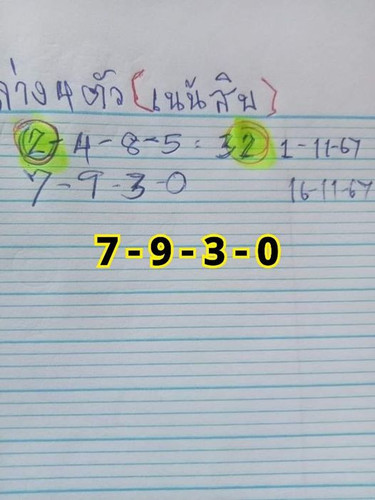 ล่าง 4 ตัว (เน้นสิบ)
2-4-8-5 = 32 1-11-67
7-9-3-0 16-11-67
7-9-3-0